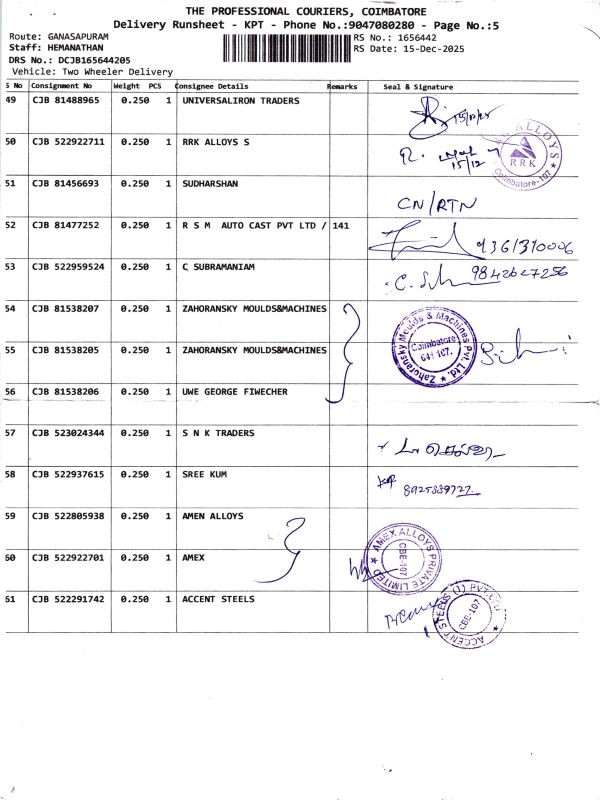 THE PROFESSIONAL COURIERS, COIMBATORE
Delivery Runsheet - KPT - Phone No.:9047080280 - Page No.:5
Route: GANASAPURAM RS No.: 1656442
Staff: HEMANATHAN RS Date: 15-Dec-2025
DRS No.: DCJB165644205
Vehicle: Two Wheeler Delivery
S No Consignment No Weight PCS Consignee Details Remarks Seal & Signature
49 CJB 81488965 0.250 1 UNIVERSALIRON TRADERS 15/12/25
50 CJB 522922711 0.250 1 RRK ALLOYS S
15/12
RRK ALLOYS
RRK
Coimbatore-107
51 CJB 81456693 0.250 1 SUDHARSHAN
CN/RTN
52 CJB 81477252 0.250 1 R S M AUTO CAST PVT LTD / 141
9361310006
53 CJB 522959524 0.250 1 C SUBRAMANIAM 9842627256
54 CJB 81538207 0.250 1 ZAHORANSKY MOULDS&MACHINES
Zahoransky Moulds & Machines Pvt. Ltd.
Coimbatore
641 107.
55 CJB 81538205 0.250 1 ZAHORANSKY MOULDS&MACHINES
56 CJB 81538206 0.250 1 UWE GEORGE FIWECHER
57 CJB 523024344 0.250 1 S N K TRADERS
58 CJB 522937615 0.250 1 SREE KUM
8925889727
59 CJB 522805938 0.250 1 AMEN ALLOYS
AMEX ALLOYS PRIVATE LIMITED
CBE-107
60 CJB 522922701 0.250 1 AMEX
61 CJB 522291742 0.250 1 ACCENT STEELS
ACCENT STEELS (I) PVT LTD
CBE-107